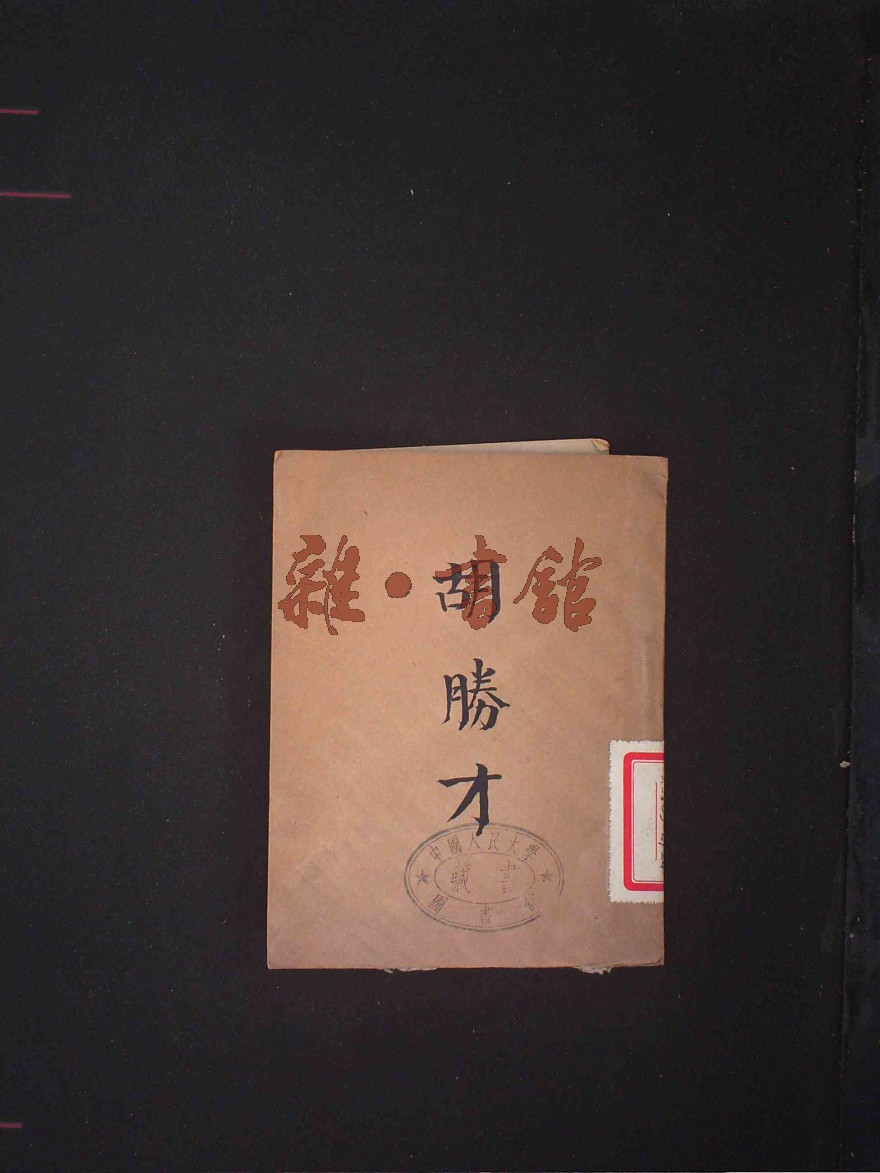 雜·書館
胡勝才
中國人民大學
藏書
圖書館